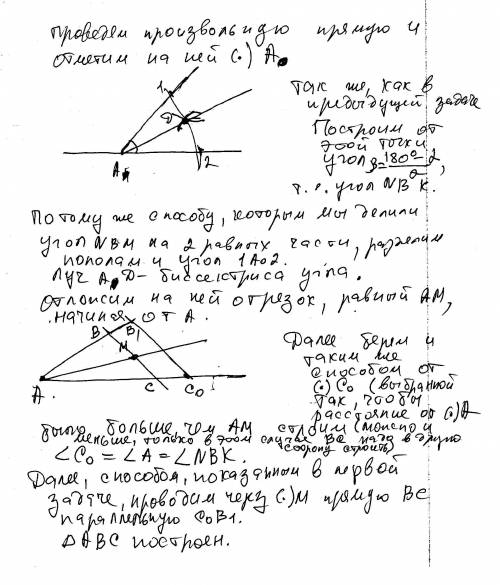 Проведем произвольную прямую и
отметим на ней (.) A₀
1
D
A₀
2
Так же, как в
предыдущей задаче
Построим от
этой точки
угол β = 180° - α / 2,
т.е. угол NBK.
По тому же способу, которым мы делили
угол NBM на 2 равных части, разделим
пополам и угол 1A₀2.
Луч A₀D - биссектриса угла.
Отложим на ней отрезок, равный AM,
начиная от A.
B
B₁
M
A
C
C₀
Далее берем и
таким же
способом от
(.) C₀ (выбранной
так, чтобы
расстояние от (.) A
было больше, чем AM строим (можно и
меньше, только в этом случае BC надо в другую
сторону строить)
∠C₀ = ∠A = ∠NBK.
Далее, способом, показанным в первой
задаче, проводим через (.) M прямую BC
параллельную C₀B₁.
ΔABC построен.